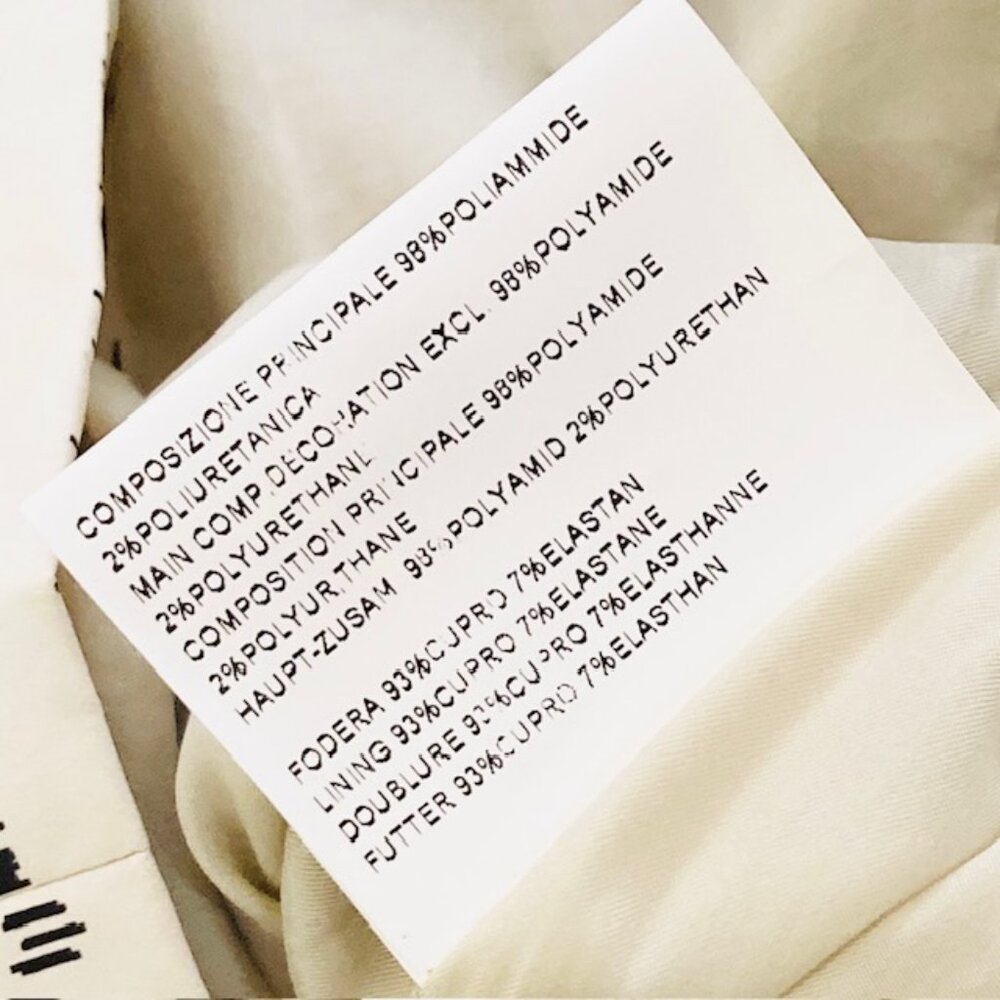 COMPOSIZIONE PRINCIPALE 98%POLIAMMIDE
2%POLIURETANICA
MAIN COMP.DECORATION EXCL. 98%POLYAMIDE
2%POLYURETHANE
COMPOSITION PRINCIPALE 98%POLYAMIDE
2%POLYURETHANE
HAUPT-ZUSAM 98%POLYAMID 2%POLYURETHAN
FODERA 93%CUPRO 7%ELASTAN
LINING 93%CUPRO 7%ELASTANE
DOUBLURE 93%CUPRO 7%ELASTHANNE
FUTTER 93%CUPRO 7%ELASTHAN